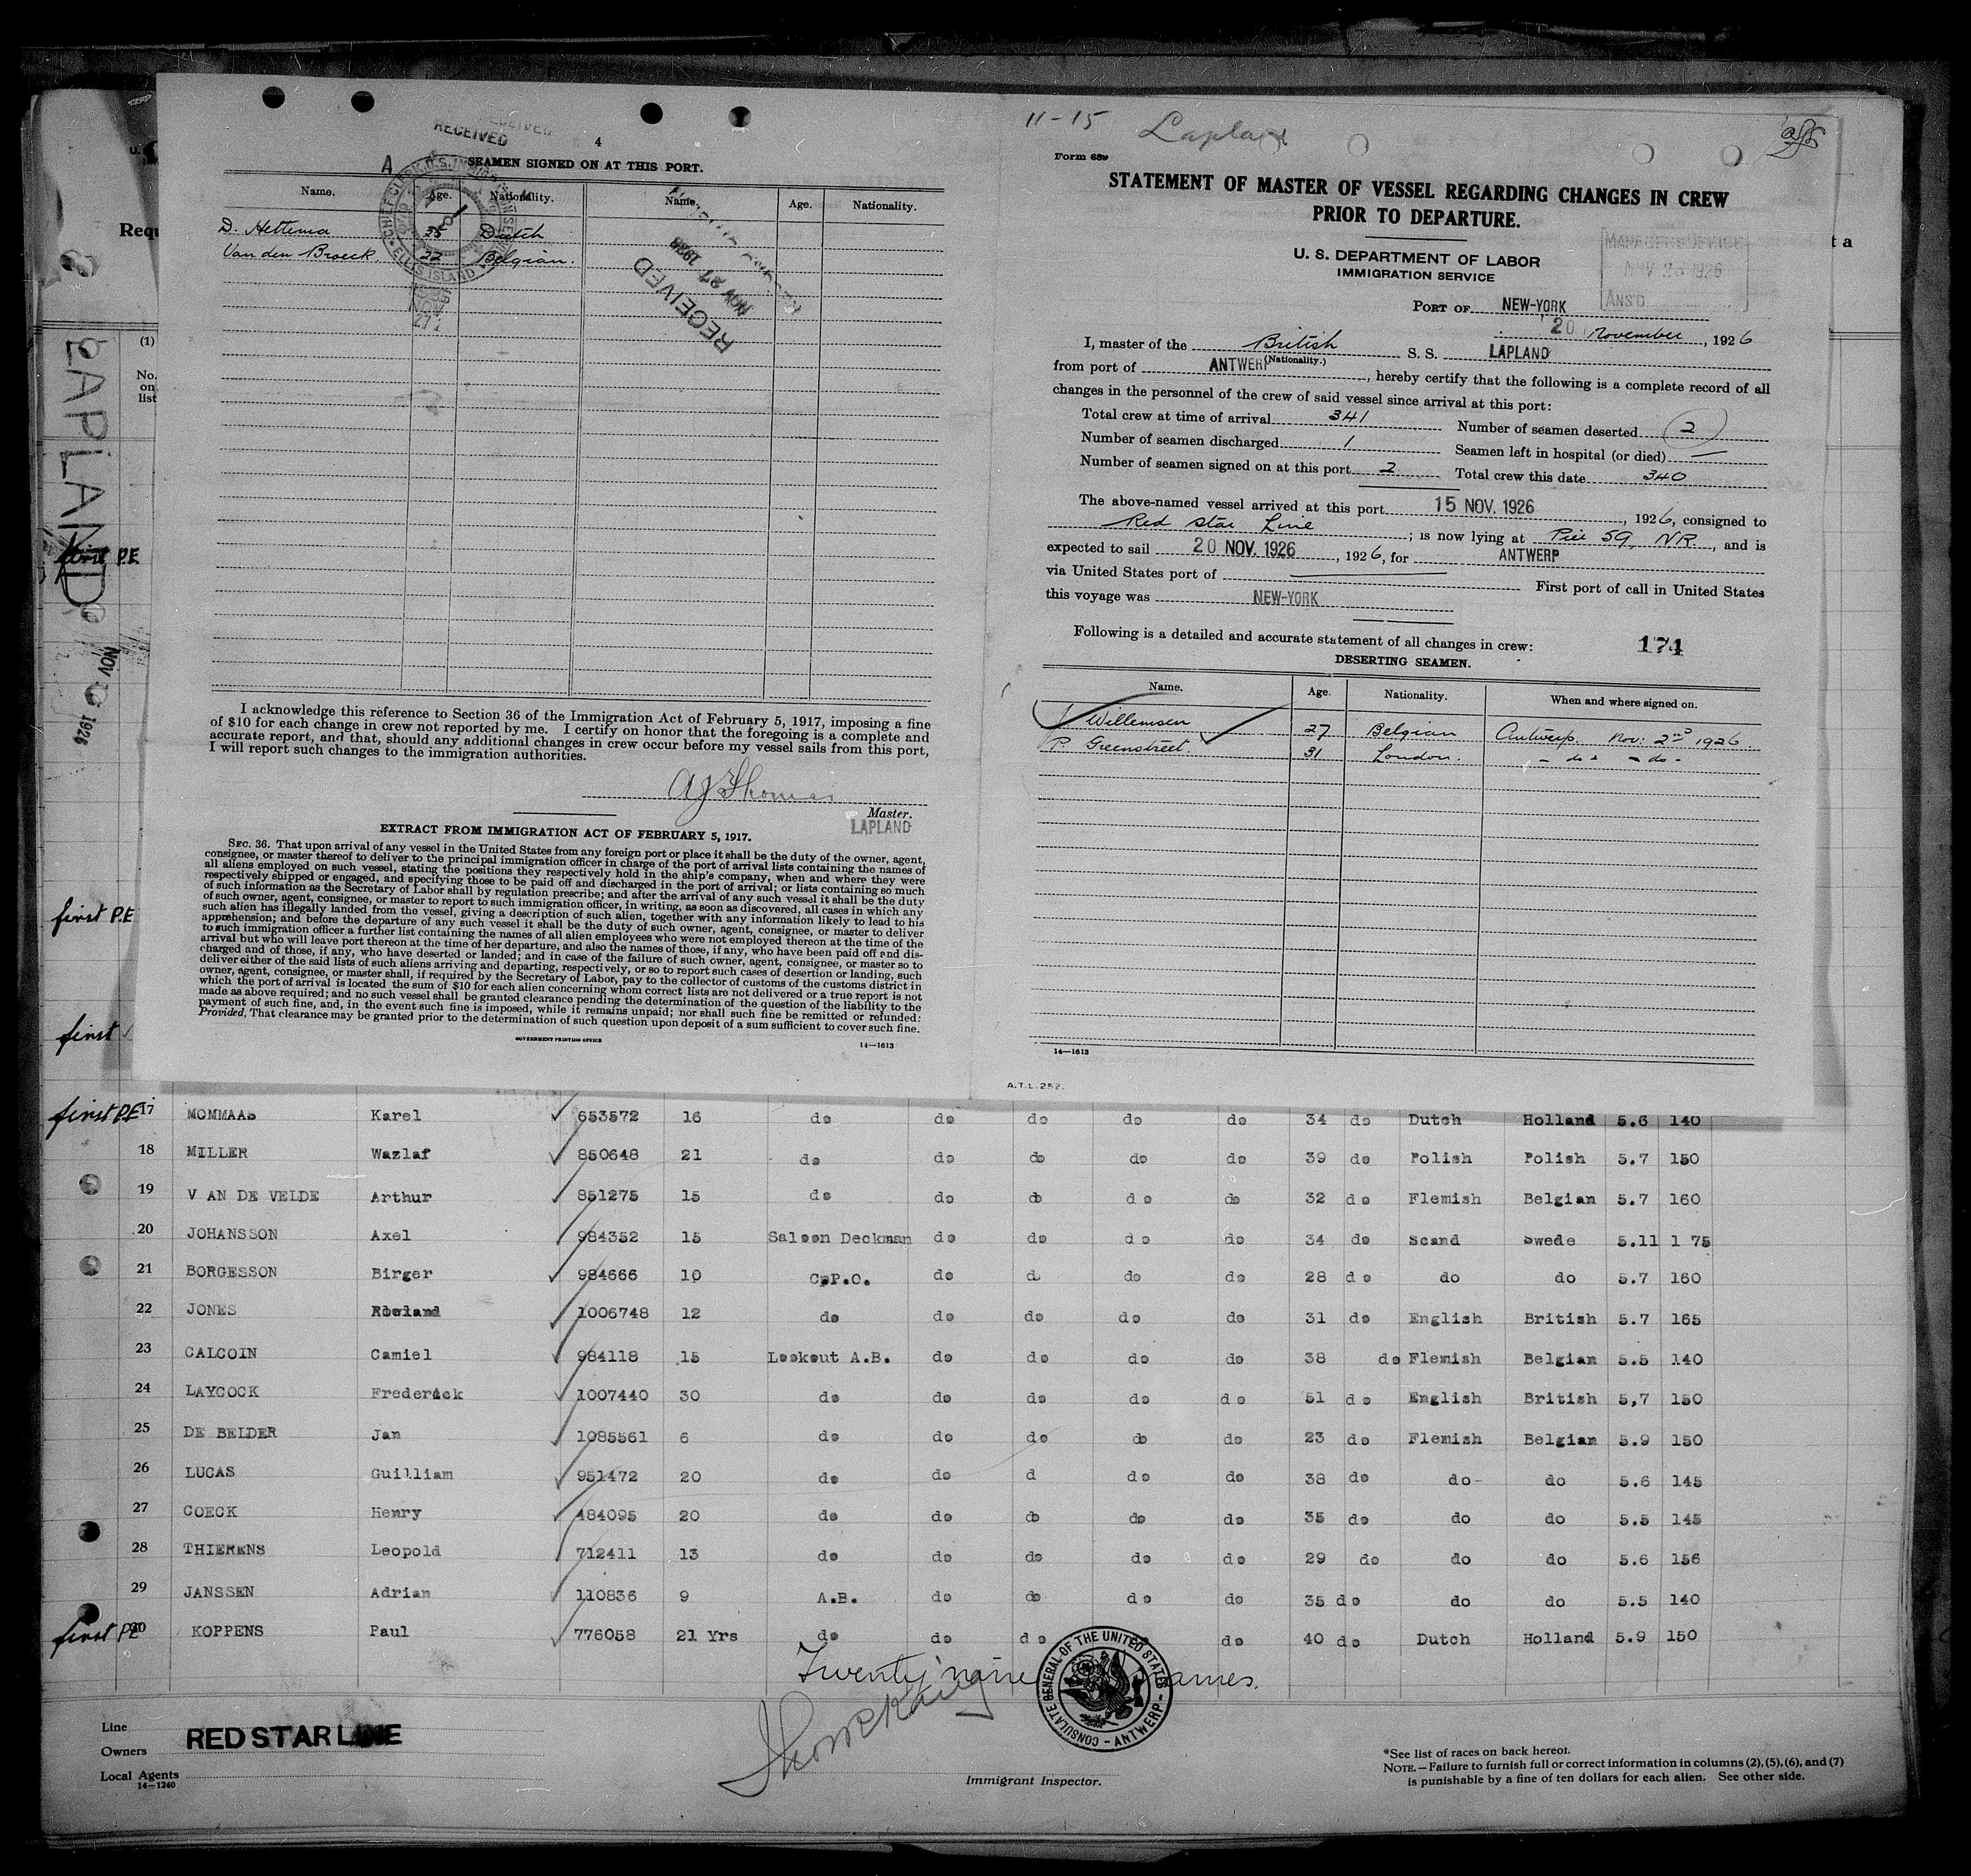 RECEIVED
RECEIVED
4
A
SEAMEN SIGNED ON AT THIS PORT.
Name. Age. Nationality. Name. Age. Nationality.
D. Hettema 35 Dutch
Van den Broeck. 22 Belgian.
ELLIS ISLAND
RECEIVED
NOV 27 1926
I acknowledge this reference to Section 36 of the Immigration Act of February 5, 1917, imposing a fine
of $10 for each change in crew not reported by me. I certify on honor that the foregoing is a complete and
accurate report, and that, should any additional changes in crew occur before my vessel sails from this port,
I will report such changes to the immigration authorities.
AJ Thomas
Master.
LAPLAND
EXTRACT FROM IMMIGRATION ACT OF FEBRUARY 5, 1917.
SEC. 36. That upon arrival of any vessel in the United States from any foreign port or place it shall be the duty of the owner, agent,
consignee, or master thereof to deliver to the principal immigration officer in charge of the port of arrival lists containing the names of
all aliens employed on such vessel, stating the positions they respectively hold in the ship's company, when and where they were
respectively shipped or engaged, and specifying those to be paid off and discharged in the port of arrival; or lists containing so much
of such information as the Secretary of Labor shall by regulation prescribe; and after the arrival of any such vessel it shall be the duty
of such owner, agent, consignee, or master to report to such immigration officer, in writing, as soon as discovered, all cases in which any
such alien has illegally landed from the vessel, giving a description of such alien, together with any information likely to lead to his
apprehension; and before the departure of any such vessel it shall be the duty of such owner, agent, consignee, or master to deliver
to such immigration officer a further list containing the names of all alien employees who were not employed thereon at the time of the
arrival but who will leave port thereon at the time of her departure, and also the names of those, if any, who have been paid off and dis-
charged and of those, if any, who have deserted or landed; and in case of the failure of such owner, agent, consignee, or master so to
deliver either of the said lists of such aliens arriving and departing, respectively, or so to report such cases of desertion or landing, such
owner, agent, consignee, or master shall, if required by the Secretary of Labor, pay to the collector of customs of the customs district in
which the port of arrival is located the sum of $10 for each alien concerning whom correct lists are not delivered or a true report is not
made as above required; and no such vessel shall be granted clearance pending the determination of the question of the liability to the
payment of such fine, and, in the event such fine is imposed, while it remains unpaid; nor shall such fine be remitted or refunded:
Provided, That clearance may be granted prior to the determination of such question upon deposit of a sum sufficient to cover such fine.
GOVERNMENT PRINTING OFFICE 14—1613
11-15 Lapland
Form 689
STATEMENT OF MASTER OF VESSEL REGARDING CHANGES IN CREW
PRIOR TO DEPARTURE.
U. S. DEPARTMENT OF LABOR
IMMIGRATION SERVICE
MANAGER'S OFFICE
NOV 23 1926
ANS'D
PORT OF NEW-YORK
20 November, 1926
I, master of the British S. S. LAPLAND
(Nationality.)
from port of ANTWERP, hereby certify that the following is a complete record of all
changes in the personnel of the crew of said vessel since arrival at this port:
Total crew at time of arrival 341 Number of seamen deserted 2
Number of seamen discharged 1 Seamen left in hospital (or died) —
Number of seamen signed on at this port 2 Total crew this date 340
The above-named vessel arrived at this port 15 NOV. 1926, 1926, consigned to
Red Star Line; is now lying at Pier 59, NR., and is
expected to sail 20 NOV. 1926, 1926, for ANTWERP
via United States port of — First port of call in United States
this voyage was NEW-YORK
Following is a detailed and accurate statement of all changes in crew: 174
DESERTING SEAMEN.
Name. Age. Nationality. When and where signed on.
Willemsen 27 Belgian Antwerp. Nov: 2nd 1926
P. Greenstreet 31 London. - do - - do -
14—1613
A.T.L.252.
Requ
t a
(1)
No.
on
list
LAPLAND
NOV 1926
first P.E
first P.E
first
first P.E 17 MOMMAAS Karel 653572 16 do do do do do 34 do Dutch Holland 5.6 140
18 MILLER Wazlaf 850648 21 do do do do do 39 do Polish Polish 5.7 150
19 V AN DE VELDE Arthur 851275 15 do do do do do 32 do Flemish Belgian 5.7 160
20 JOHANSSON Axel 984352 15 Saloon Deckman do do do do 34 do Scand Swede 5.11 1 75
21 BORGESSON Birger 984666 10 C.P.O. do do do do 28 do do do 5.7 160
22 JONES Rowland 1006748 12 do do do do do 31 do English British 5.7 165
23 CALCOIN Camiel 984118 15 Lookout A.B. do do do do 38 do Flemish Belgian 5.5 140
24 LAYCOCK Frederick 1007440 30 do do do do do 51 do English British 5,7 150
25 DE BELDER Jan 1085561 6 do do do do do 23 do Flemish Belgian 5.9 150
26 LUCAS Guilliam 951472 20 do do d do do 38 do do- do 5.6 145
27 COECK Henry 484095 20 do do do do do 35 do do do 5.5 145
28 THIERENS Leopold 712411 13 do do do do do 29 do do do 5.6 156
29 JANSSEN Adrian 110836 9 A.B. do do do do 35 do do do 5.5 140
first PE 30 KOPPENS Paul 776058 21 Yrs do do do do 40 do Dutch Holland 5.9 150
Twenty nine names.
CONSULATE GENERAL OF THE UNITED STATES - ANTWERP -
Line
Owners
RED STAR LINE
Local Agents
14—1240
Immigrant Inspector.
*See list of races on back hereof.
NOTE.—Failure to furnish full or correct information in columns (2), (5), (6), and (7)
is punishable by a fine of ten dollars for each alien. See other side.